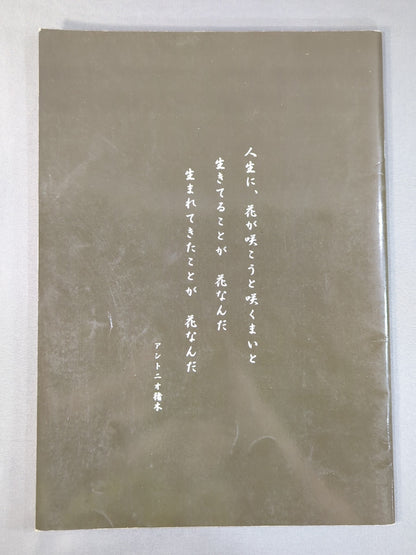 人生に、花が咲こうと咲くまいと
生きてることが 花なんだ
生まれてきたことが 花なんだ
アントニオ猪木